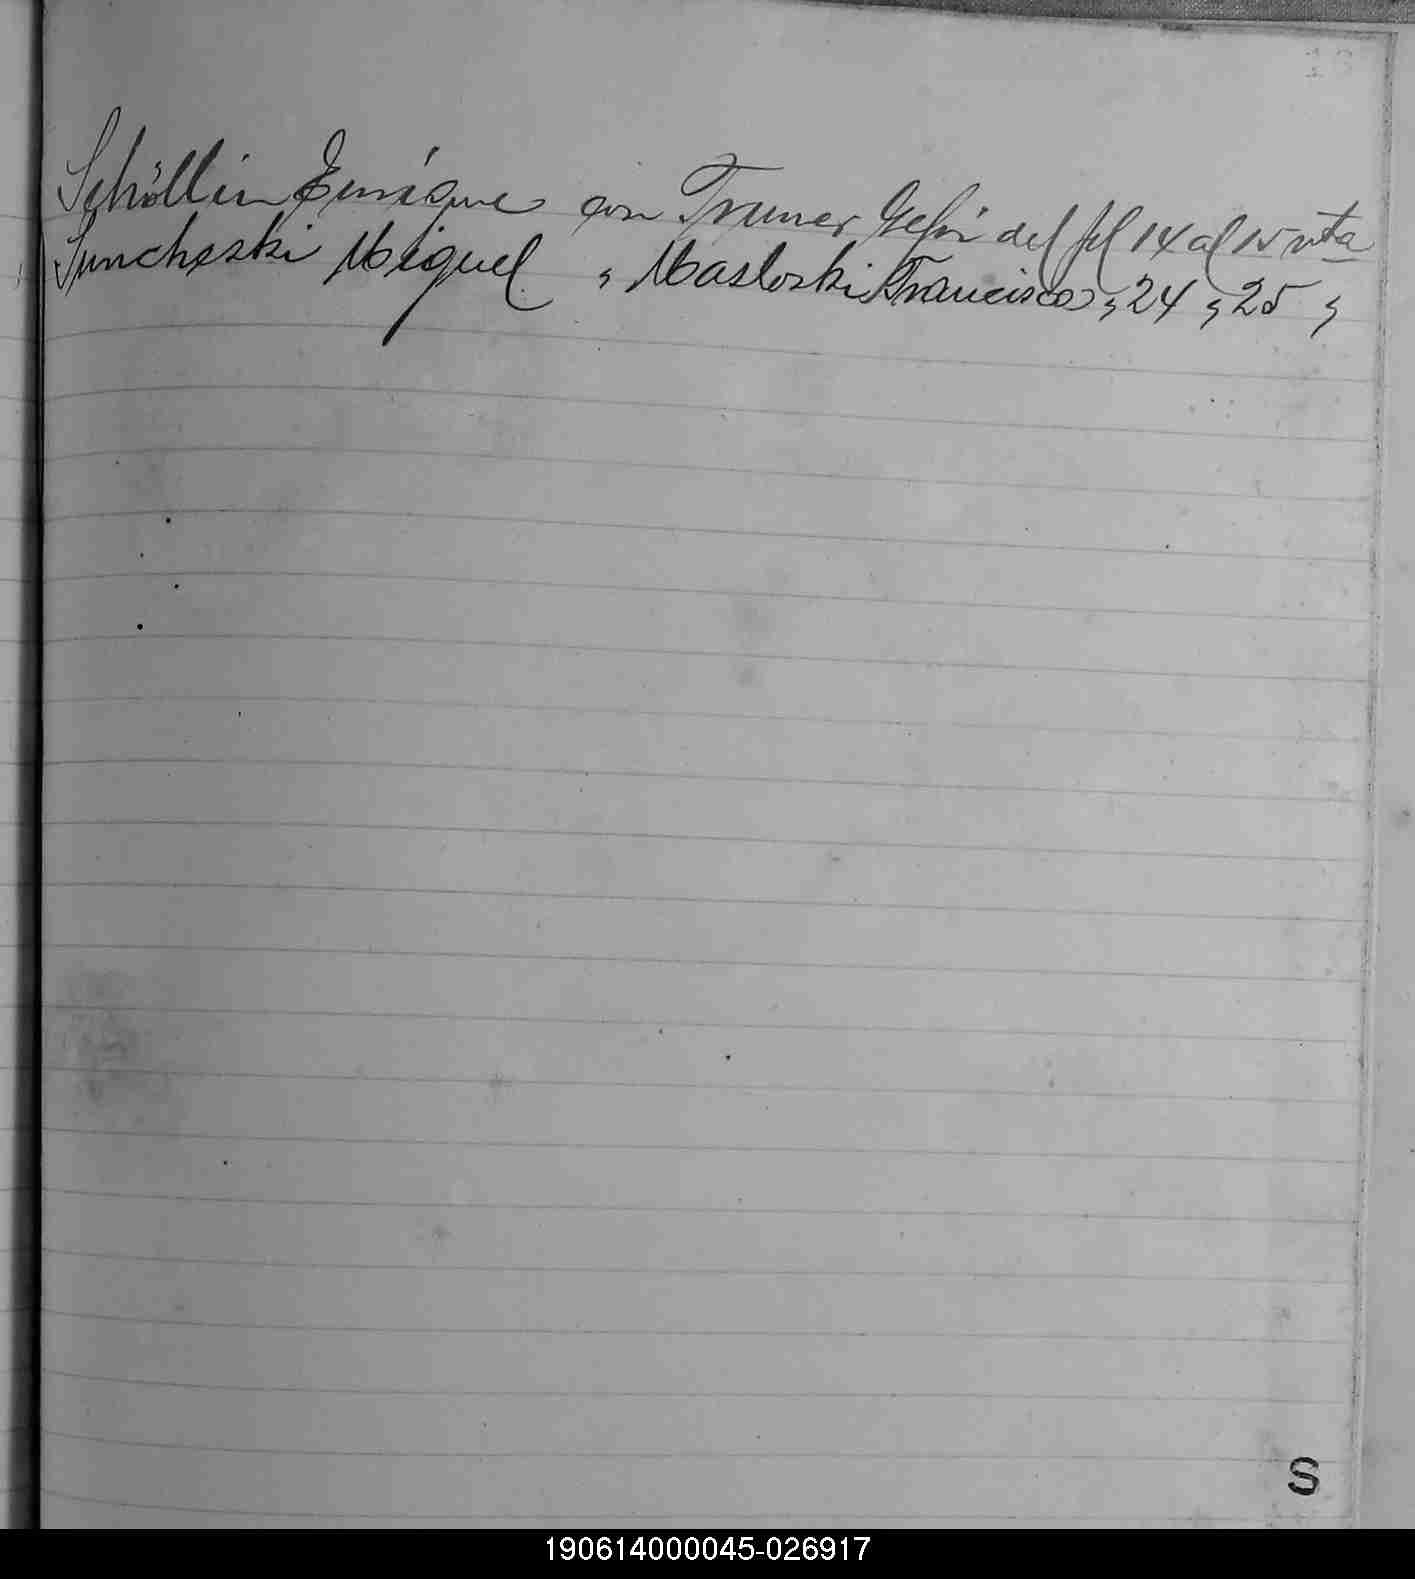 Schöllin Enrique con Truner Gefr del fol 14 al 15 vta
Suncheski Miguel " Masloski Francisco " 24 " 25 "
S
190614000045-026917